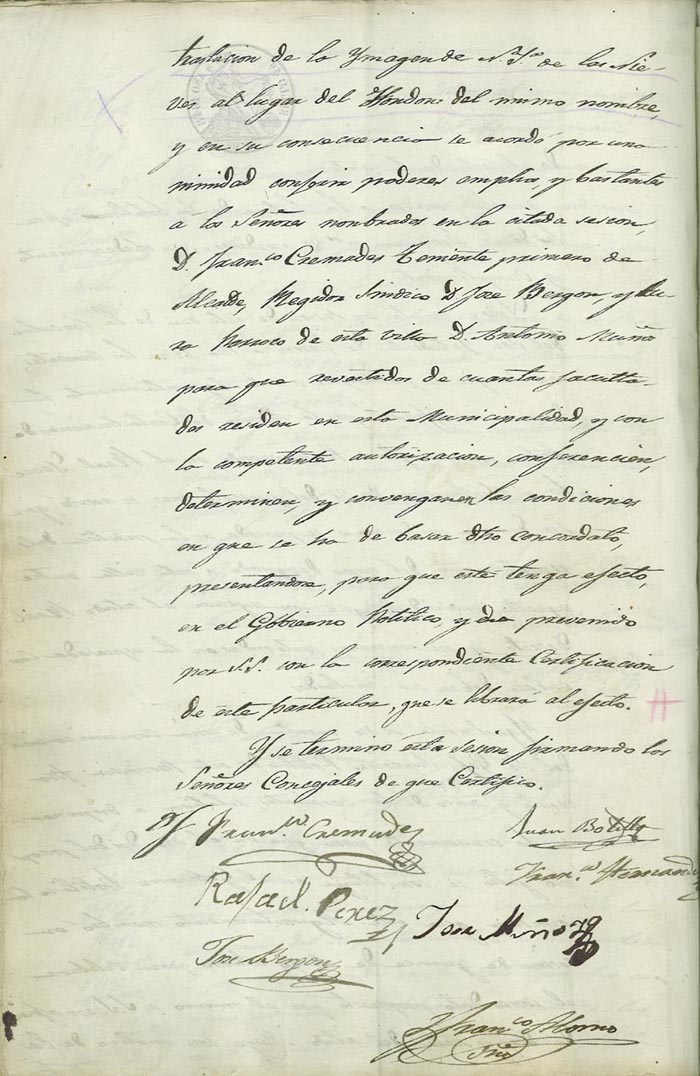 traslacion de la Ymagen de N.ª S.ª de las Nie-
ves al lugar del Hondon del mismo nombre,
y en su consecuencia se acordó por una
nimidad conferir poderes amplios, y bastantes
á los Señores nonbrados en la citada sesion,
D. Fran.co Cremades Teniente primero de
Alcalde, Regidor Sindico D. Jose Bergon, y Cu-
ra Parroco de esta villa D. Antonio Muña
para que revestidos de cuantas faculta-
des residen en esta Municipalidad, y con
la competente autorizacion, conferencien,
determinen, y convengan en las condiciones
en que se ha de basar dho concordato,
presentandose, para que este tenga efecto,
en el Gobierno Politico, y dia prevenido
por S.S. con la correspondiente Certificacion
de este particular, que se librará al efecto.
Y se terminó esta sesion firmando los
Señores Concejales de que Certifico.
Fran.co Cremades
Juan Botella
Fran.co Hernandez
Rafael Perez
Jose Muñoz
Jose Bergon
Fran.co Alorno
Srio